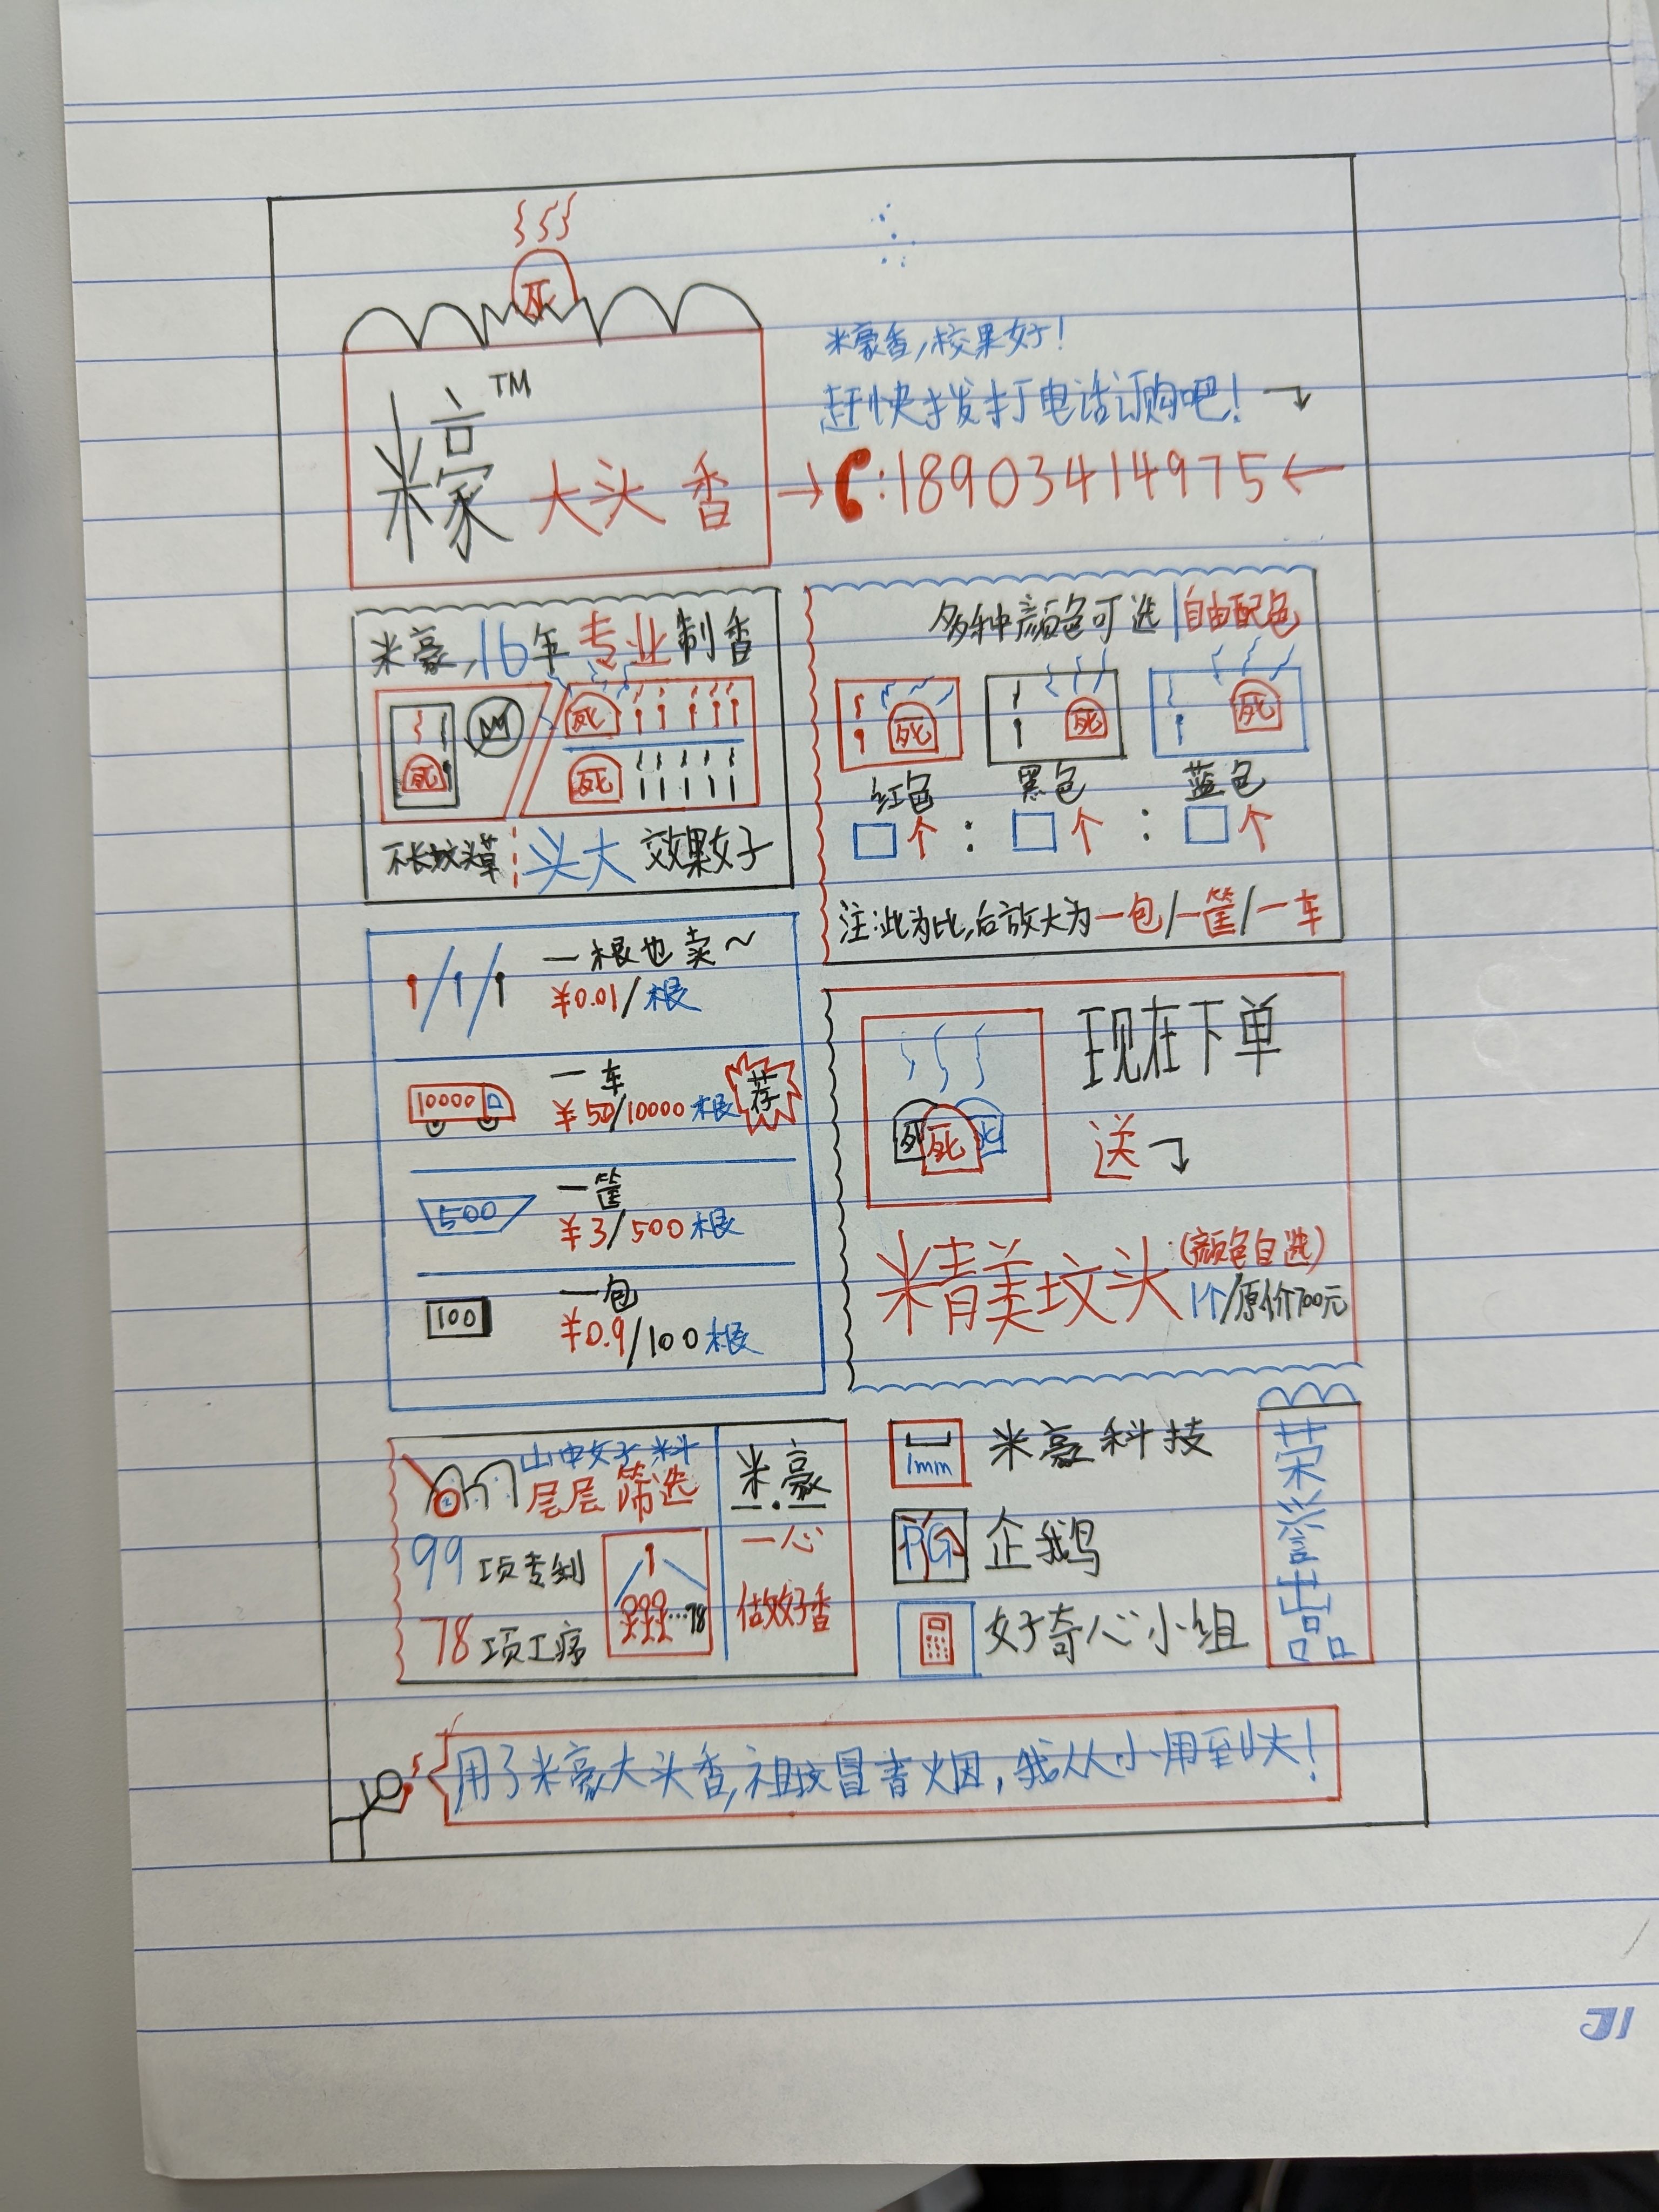 死
米豪™
大头香
米豪香,校果好!
赶快拨打电话订购吧!
:18903414975
米豪,16年专业制香
死
死
死
不长坟头草
头大 效果好
多种颜色可选 自由配色
死 死 死
红色 黑色 蓝色
个: 个: 个
注:此为比,后放大为一包/一筐/一车
一根也卖~
¥0.01/根
10000
一车
¥50/10000根
荐
500
一筐
¥3/500根
100
一包
¥0.9/100根
死 死 死
现在下单
送
精美坟头(颜色自选)
1个/原价700元
山中好料
层层筛选
99项专利
78项工序
…78
米豪
一心
做好香
1mm
米豪科技
PG
企鹅
好奇心小组
荣誉出品
用了米豪大头香,祖坟冒青烟,我从小用到大!